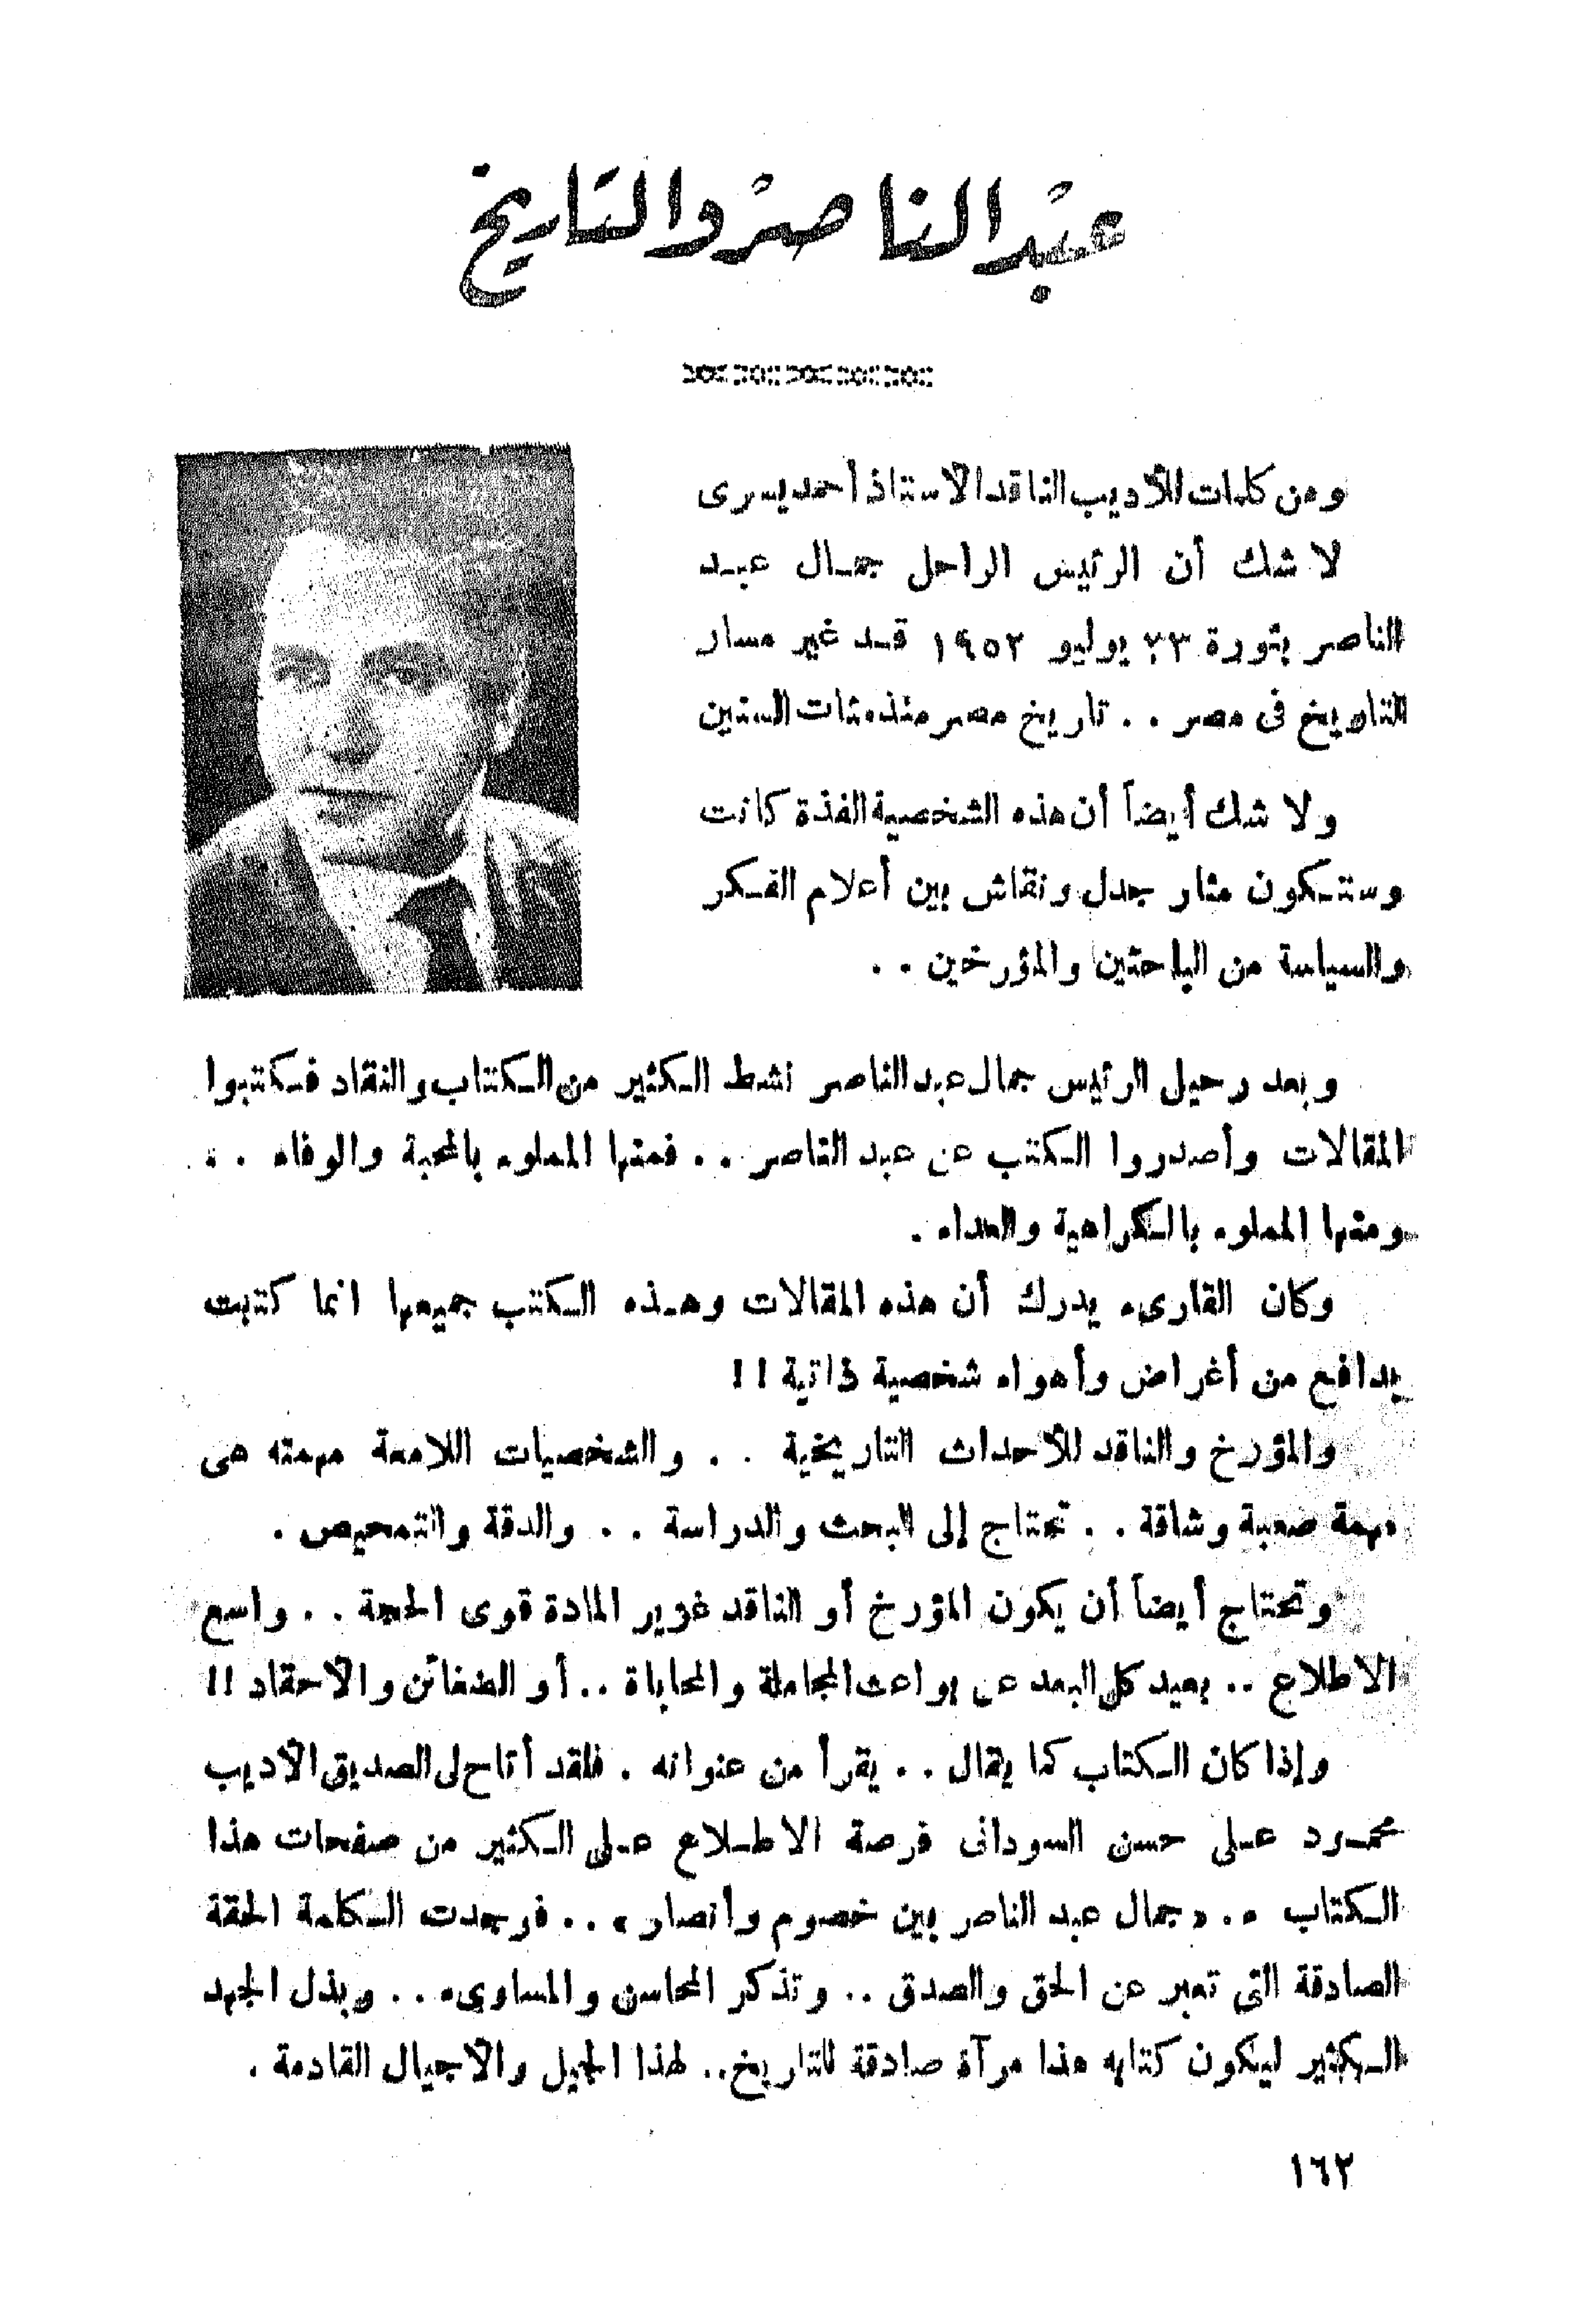 عبد الناصر والتاريخ
ومن كلمات للأديب الناقد الاستاذ أحمد يسرى
لا شك أن الرئيس الراحل جمال عبد
الناصر بثورة ٢٣ يوليو ١٩٥٢ قد غير مسار
التاريخ فى مصر . . تاريخ مصر منذ مئات السنين
ولا شك أيضاً أن هذه الشخصية الفذة كانت
وستكون مثار جدل ونقاش بين أعلام الفكر
والسياسة من الباحثين والمؤرخين . .
وبعد رحيل الرئيس جمال عبد الناصر نشط الكثير من الكتاب والنقاد فكتبوا
المقالات وأصدروا الكتب عن عبد الناصر . . فمنها المملوء بالمحبة والوفاء . .
ومنها المملوء بالكراهية والعداء .
وكان القارىء يدرك أن هذه المقالات وهذه الكتب جميعها انما كتبت
بدافع من أغراض وأهواء شخصية ذاتية !!
والمؤرخ والناقد للأحداث التاريخية . . والشخصيات اللامعة مهمته هى
مهمة صعبة وشاقة . . تحتاج إلى البحث والدراسة . . والدقة والتمحيص .
وتحتاج أيضاً أن يكون المؤرخ أو الناقد غزير المادة قوى الحجة . . واسع
الاطلاع . . بعيد كل البعد عن بواعث المجاملة والمحاباة . . أو الضغائن والأحقاد !!
وإذا كان الكتاب كما يقال . . يقرأ من عنوانه . فلقد أتاح لى الصديق الأديب
محمود على حسن السودانى فرصة الاطلاع على الكثير من صفحات هذا
الكتاب . . « جمال عبد الناصر بين خصوم وأنصار » . . فوجدت الكلمة الحقة
الصادقة التى تعبر عن الحق والصدق . . وتذكر المحاسن والمساوىء . . وبذل الجهد
الكثير ليكون كتابه هذا مرآة صادقة للتاريخ . . لهذا الجيل والأجيال القادمة .
١٦٢